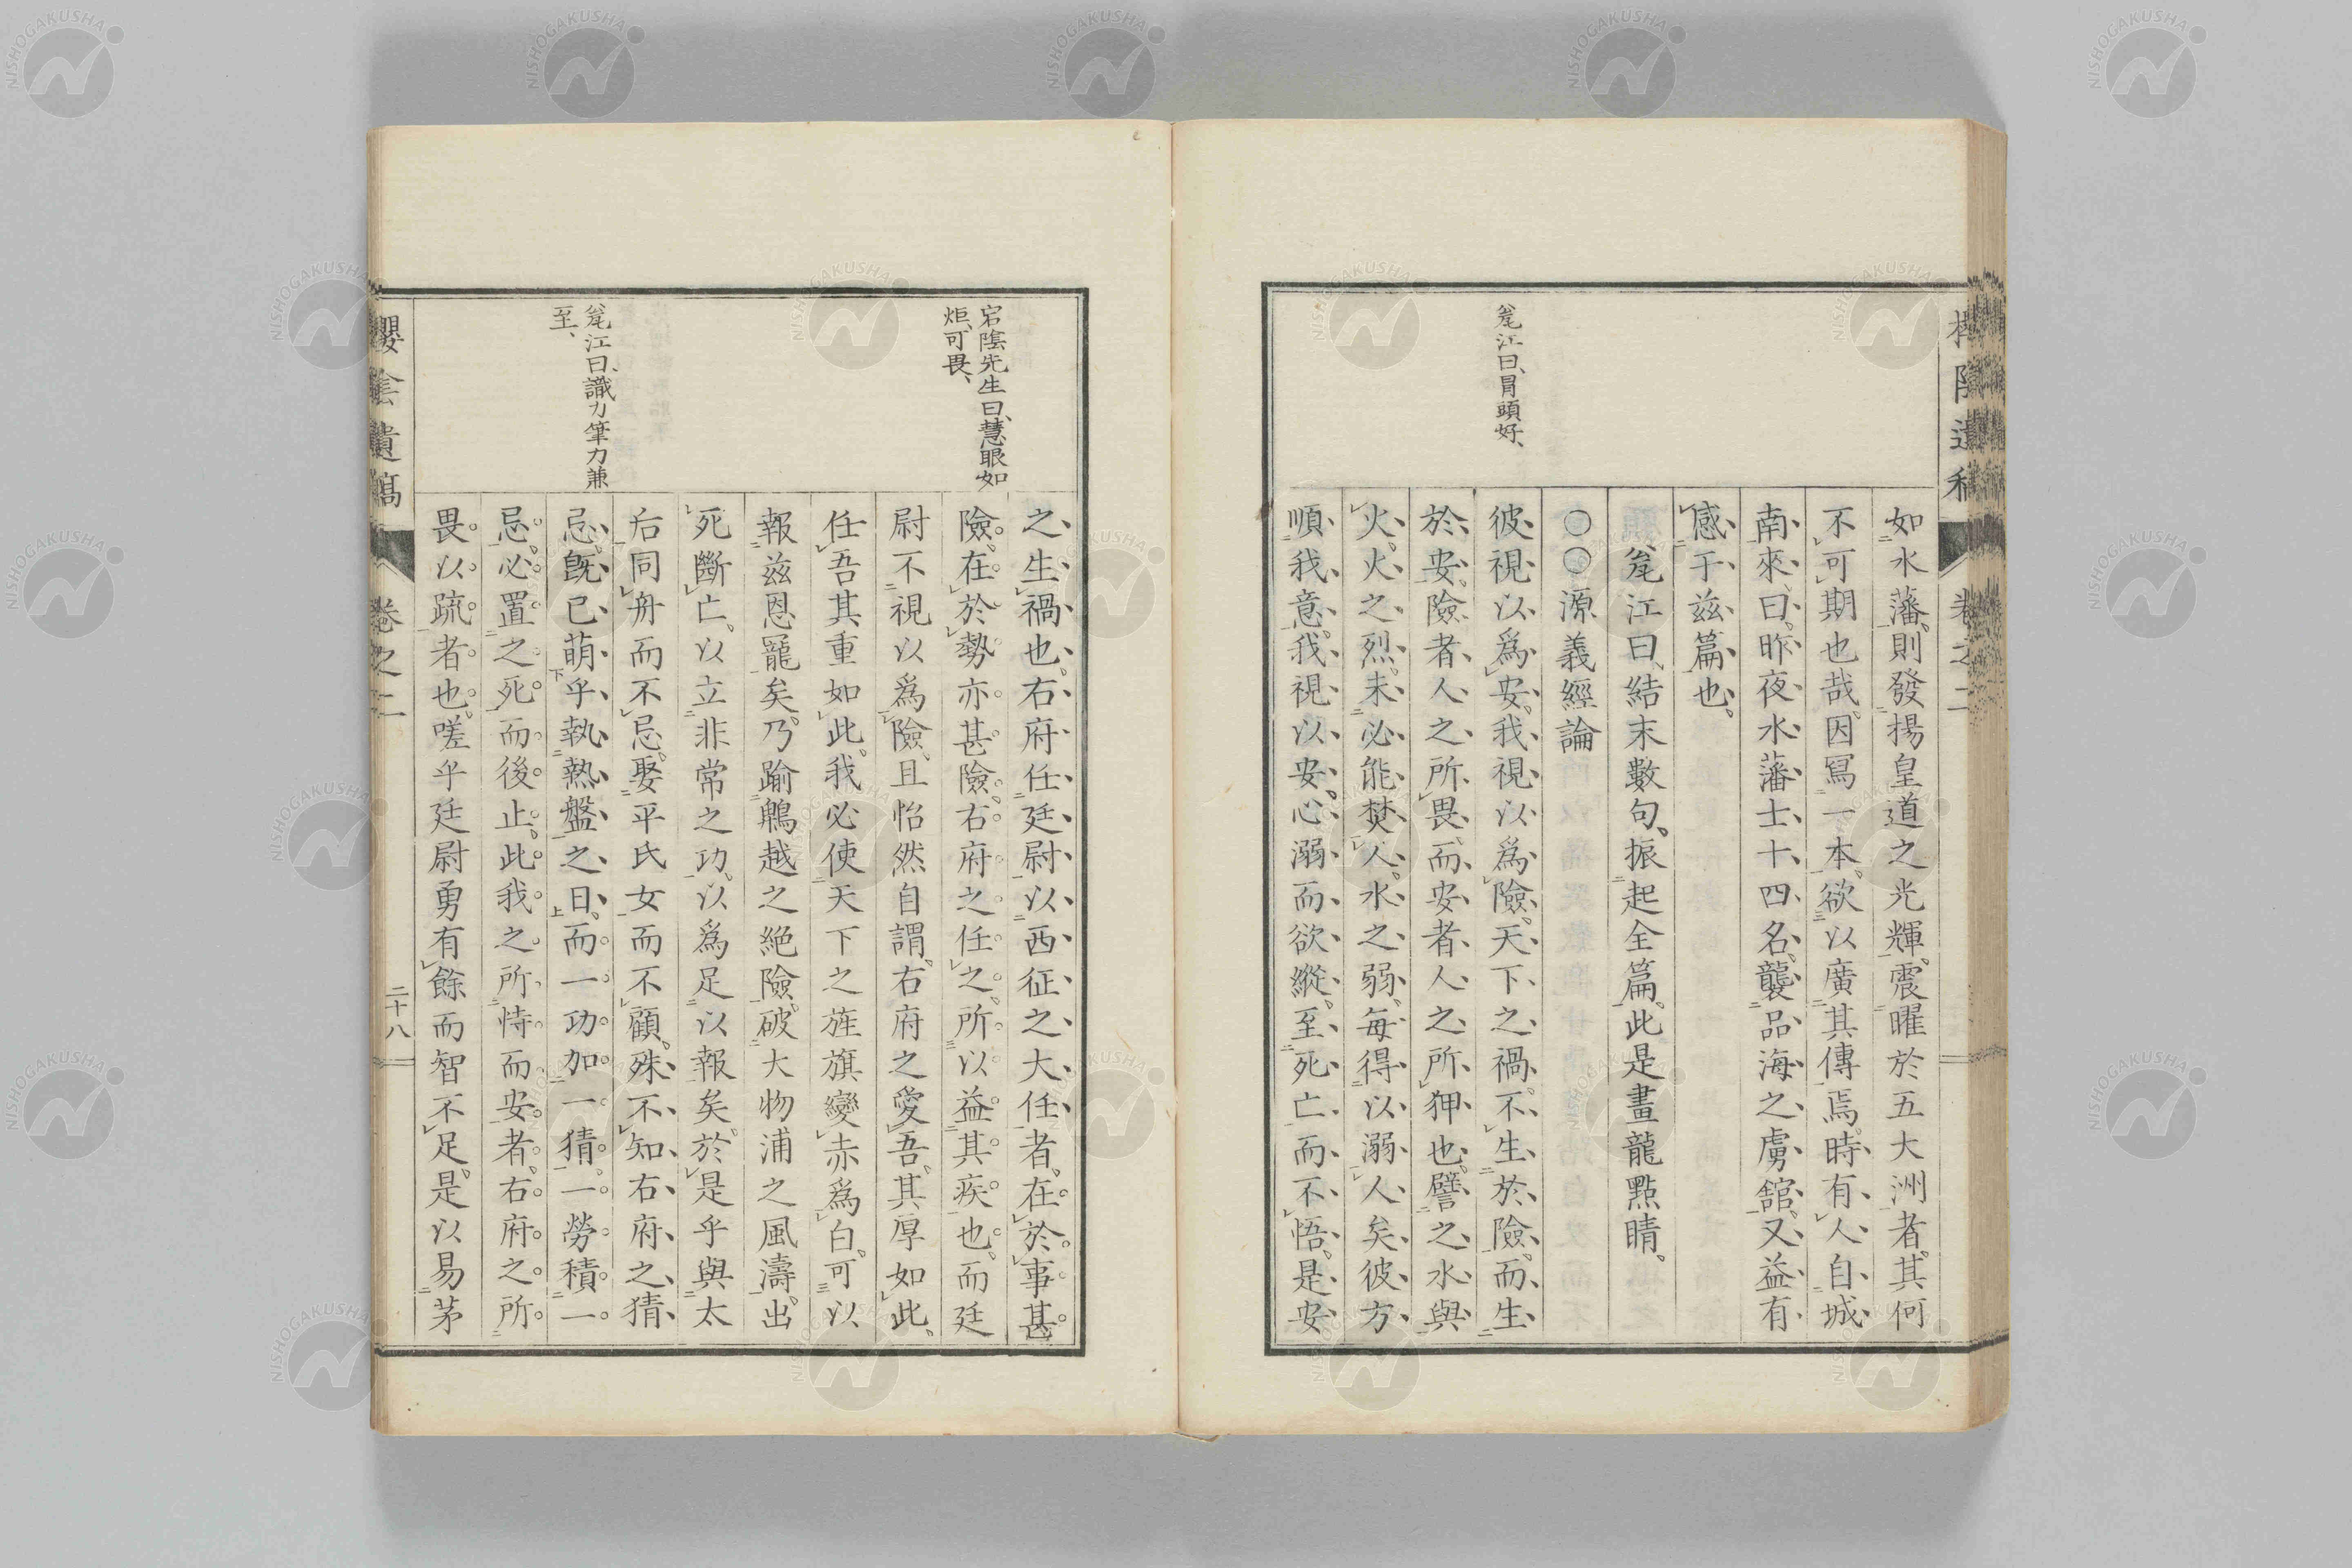 毱江曰、冒頭好、
如水藩。則發揚皇道之光輝。震曜於五大洲者。其何
不可期也哉。因冩一本。欲以廣其傳焉。時有人自城
南來。曰。昨夜水藩士十四名。襲品海之虜舘。又益有
感于茲篇也。
江曰、結末數句。振起全篇。此是畫龍點睛。
〇〇源義經論
彼視以爲安。我視以爲險。天下之禍。不生於險。而生
於安。險者人之所畏。而安者人之所狎也。譬之水與
火。火之烈。未必能焚人。水之弱。每得以溺人矣。彼方
順我意。我視以安。心溺而欲縱。至死亡而不悟。是安
之生禍也。右府任廷尉。以西征之大任者。在於事甚
險。在於勢亦甚險。右府之任之。所以益其疾也。而廷
尉不視以爲險。且怡然自謂。右府之愛吾。其厚如此。
任吾其重如此。我必使天下之旌旗變赤爲白。可以
報茲恩寵矣。乃踰鵯越之絶險。破大物浦之風濤。出
死斷亡。以立非常之功。以爲足以報矣。於是乎與太
右同舟而不忌。娶平氏女而不顧。殊不知右府之猜
忌。既已萌乎執熱盤之日。而一功加一猜。一勞積一
忌。必置之死而後止。此我之所恃而安者。右府之所
畏以疏者也。嗟乎廷尉勇有餘而智不足。是以易茅
宕陰先生曰、慧眼如
炬、可畏、
江曰、識力筆力兼
至、
櫻陰遺稿
卷之二
二十八